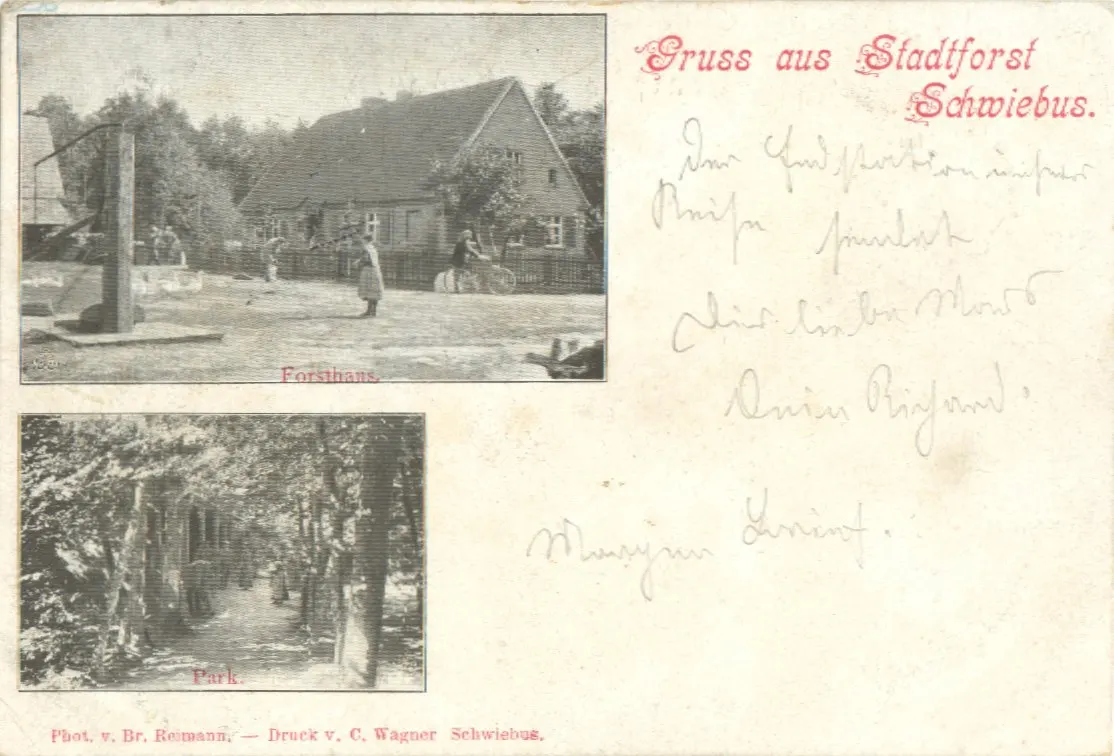 Gruss aus Stadtforst
Schwiebus.
Der Endstation unserer
Reise sendet
Dir liebe
Dein Richard.
Morgen Brief.
Forsthaus.
Park.
Phot. v. Br. Reimann. — Druck v. C. Wagner Schwiebus.